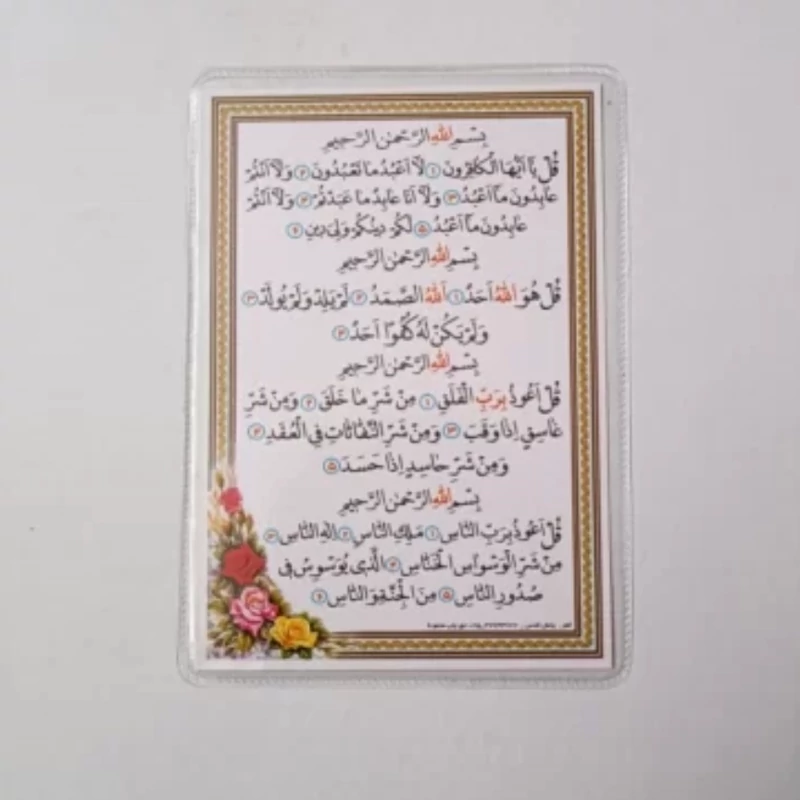 بِسْمِ اللهِ الرَّحْمٰنِ الرَّحِيمِ
قُلْ يَا اَيُّهَا الْكَافِرُونَ ۱ لَا اَعْبُدُ مَا تَعْبُدُونَ ۲ وَلَا اَنْتُمْ
عَابِدُونَ مَا اَعْبُدُ ۳ وَلَا اَنَا عَابِدٌ مَا عَبَدْتُمْ ۴ وَلَا اَنْتُمْ
عَابِدُونَ مَا اَعْبُدُ ۵ لَكُمْ دِينُكُمْ وَلِيَ دِينِ ۶
بِسْمِ اللهِ الرَّحْمٰنِ الرَّحِيمِ
قُلْ هُوَ اللهُ اَحَدٌ ۱ اَللهُ الصَّمَدُ ۲ لَمْ يَلِدْ وَلَمْ يُولَدْ ۳
وَلَمْ يَكُنْ لَهُ كُفُوًا اَحَدٌ ۴
بِسْمِ اللهِ الرَّحْمٰنِ الرَّحِيمِ
قُلْ اَعُوذُ بِرَبِّ الْفَلَقِ ۱ مِنْ شَرِّ مَا خَلَقَ ۲ وَمِنْ شَرِّ
غَاسِقٍ اِذَا وَقَبَ ۳ وَمِنْ شَرِّ النَّفَّاثَاتِ فِي الْعُقَدِ ۴
وَمِنْ شَرِّ حَاسِدٍ اِذَا حَسَدَ ۵
بِسْمِ اللهِ الرَّحْمٰنِ الرَّحِيمِ
قُلْ اَعُوذُ بِرَبِّ النَّاسِ ۱ مَلِكِ النَّاسِ ۲ اِلٰهِ النَّاسِ ۳
مِنْ شَرِّ الْوَسْوَاسِ الْخَنَّاسِ ۴ الَّذِي يُوَسْوِسُ فِي
صُدُورِ النَّاسِ ۵ مِنَ الْجِنَّةِ وَالنَّاسِ ۶